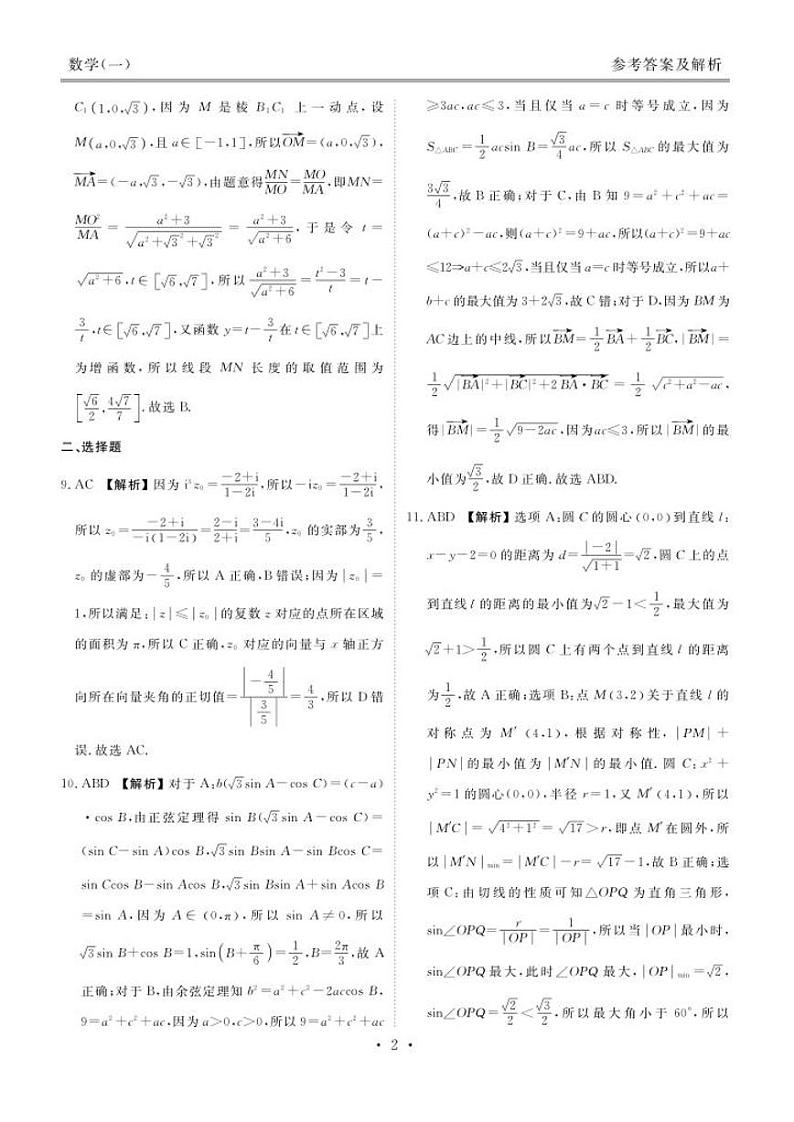 数学(一)
参考答案及解析
C₁(1,0,√3),因为 M 是棱 B₁C₁ 上一动点,设
M(a,0,√3),且 a∈[-1,1],所以\overrightarrow{OM}=(a,0,√3),
\overrightarrow{MA}=(-a,√3,-√3),由题意得\frac{MN}{MO}=\frac{MO}{MA},即MN=
\frac{MO²}{MA}=\frac{a²+3}{\sqrt{a²+√3²+√3²}}=\frac{a²+3}{\sqrt{a²+6}},于是令 t=
\sqrt{a²+6},t∈[√6,√7],所以\frac{a²+3}{\sqrt{a²+6}}=\frac{t²-3}{t}=t-
\frac{3}{t},t∈[√6,√7],又函数 y=t-\frac{3}{t}在 t∈[√6,√7]上
为增函数,所以线段 MN 长度的取值范围为
[\frac{√6}{2},\frac{4√7}{7}].故选 B.
二、选择题
9. AC 【解析】因为 i³z₀=\frac{-2+i}{1-2i},所以-iz₀=\frac{-2+i}{1-2i},
所以 z₀=\frac{-2+i}{-i(1-2i)}=\frac{2-i}{2+i}=\frac{3-4i}{5},z₀ 的实部为\frac{3}{5},
z₀ 的虚部为-\frac{4}{5},所以 A 正确,B 错误;因为|z₀|=
1,所以满足:|z|≤|z₀|的复数 z 对应的点所在区域
的面积为 π,所以 C 正确,z₀ 对应的向量与 x 轴正方
向所在向量夹角的正切值=\frac{|-\frac{4}{5}|}{|\frac{3}{5}|}=\frac{4}{3},所以 D 错
误.故选 AC.
10. ABD 【解析】对于 A:b(√3sin A-cos C)=(c-a)
·cos B,由正弦定理得 sin B(√3sin A-cos C)=
(sin C-sin A)cos B,√3sin Bsin A-sin Bcos C=
sin Ccos B-sin Acos B,√3sin Bsin A+sin Acos B
=sin A,因为 A∈(0,π),所以 sin A≠0,所以
√3sin B+cos B=1,sin(B+\frac{π}{6})=\frac{1}{2},B=\frac{2π}{3},故 A
正确;对于 B,由余弦定理知 b²=a²+c²-2accos B,
9=a²+c²+ac,因为 a>0,c>0,所以 9=a²+c²+ac
≥3ac,ac≤3,当且仅当 a=c 时等号成立,因为
S△ABC=\frac{1}{2}acsin B=\frac{√3}{4}ac,所以 S△ABC 的最大值为
\frac{3√3}{4},故 B 正确;对于 C,由 B 知 9=a²+c²+ac=
(a+c)²-ac,则(a+c)²=9+ac,所以(a+c)²=9+ac
≤12⇒a+c≤2√3,当且仅当 a=c 时等号成立,所以a+
b+c 的最大值为 3+2√3,故 C 错;对于 D,因为 BM 为
AC 边上的中线,所以\overrightarrow{BM}=\frac{1}{2}\overrightarrow{BA}+\frac{1}{2}\overrightarrow{BC},|\overrightarrow{BM}|=
\frac{1}{2}\sqrt{|\overrightarrow{BA}|²+|\overrightarrow{BC}|²+2\overrightarrow{BA}·\overrightarrow{BC}}=\frac{1}{2}\sqrt{c²+a²-ac},
得|\overrightarrow{BM}|=\frac{1}{2}\sqrt{9-2ac},因为ac≤3,所以|\overrightarrow{BM}|的最
小值为\frac{√3}{2},故 D 正确.故选 ABD.
11. ABD 【解析】选项 A:圆 C 的圆心(0,0)到直线 l:
x-y-2=0 的距离为 d=\frac{|-2|}{\sqrt{1+1}}=√2,圆 C 上的点
到直线 l 的距离的最小值为√2-1<\frac{1}{2},最大值为
√2+1>\frac{1}{2},所以圆 C 上有两个点到直线 l 的距离
为\frac{1}{2},故 A 正确;选项 B:点 M(3,2)关于直线 l 的
对称点为 M′(4,1),根据对称性,|PM|+
|PN|的最小值为|M′N|的最小值.圆 C:x²+
y²=1 的圆心(0,0),半径 r=1,又 M′(4,1),所以
|M′C|=\sqrt{4²+1²}=√17>r,即点 M′在圆外,所
以|M′N|min=|M′C|-r=√17-1,故 B 正确;选
项 C:由切线的性质可知△OPQ 为直角三角形,
sin∠OPQ=\frac{r}{|OP|}=\frac{1}{|OP|},所以当|OP|最小时,
sin∠OPQ 最大,此时∠OPQ 最大,|OP|min=√2,
sin∠OPQ=\frac{√2}{2}<\frac{√3}{2},所以最大角小于 60°,所以
· 2 ·